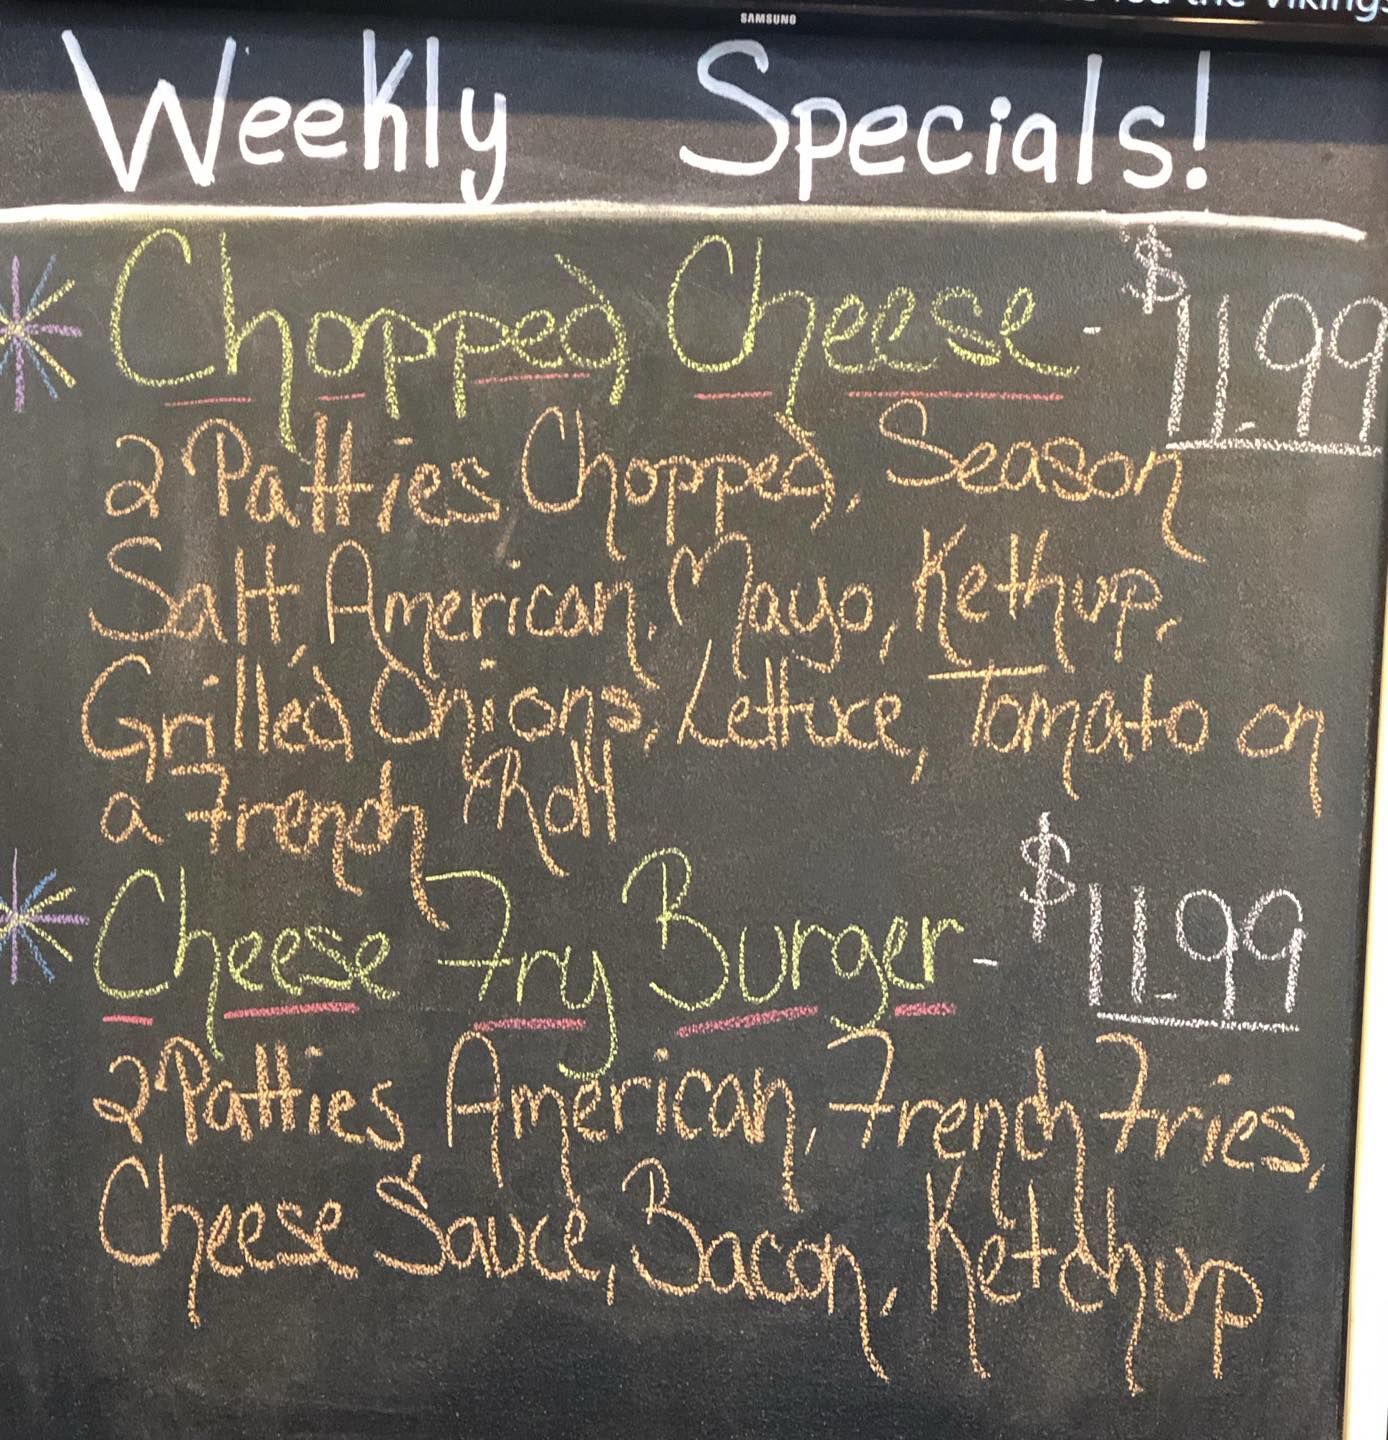 the Vikings
SAMSUNG
Weekly Specials!
Chopped Cheese - $11.99
2 Patties Chopped, Season
Salt, American, Mayo, Kethup,
Grilled Onions, Lettuce, Tomato on
a French Roll
Cheese Fry Burger - $11.99
2 Patties, American, French Fries,
Cheese Sauce, Bacon, Ketchup